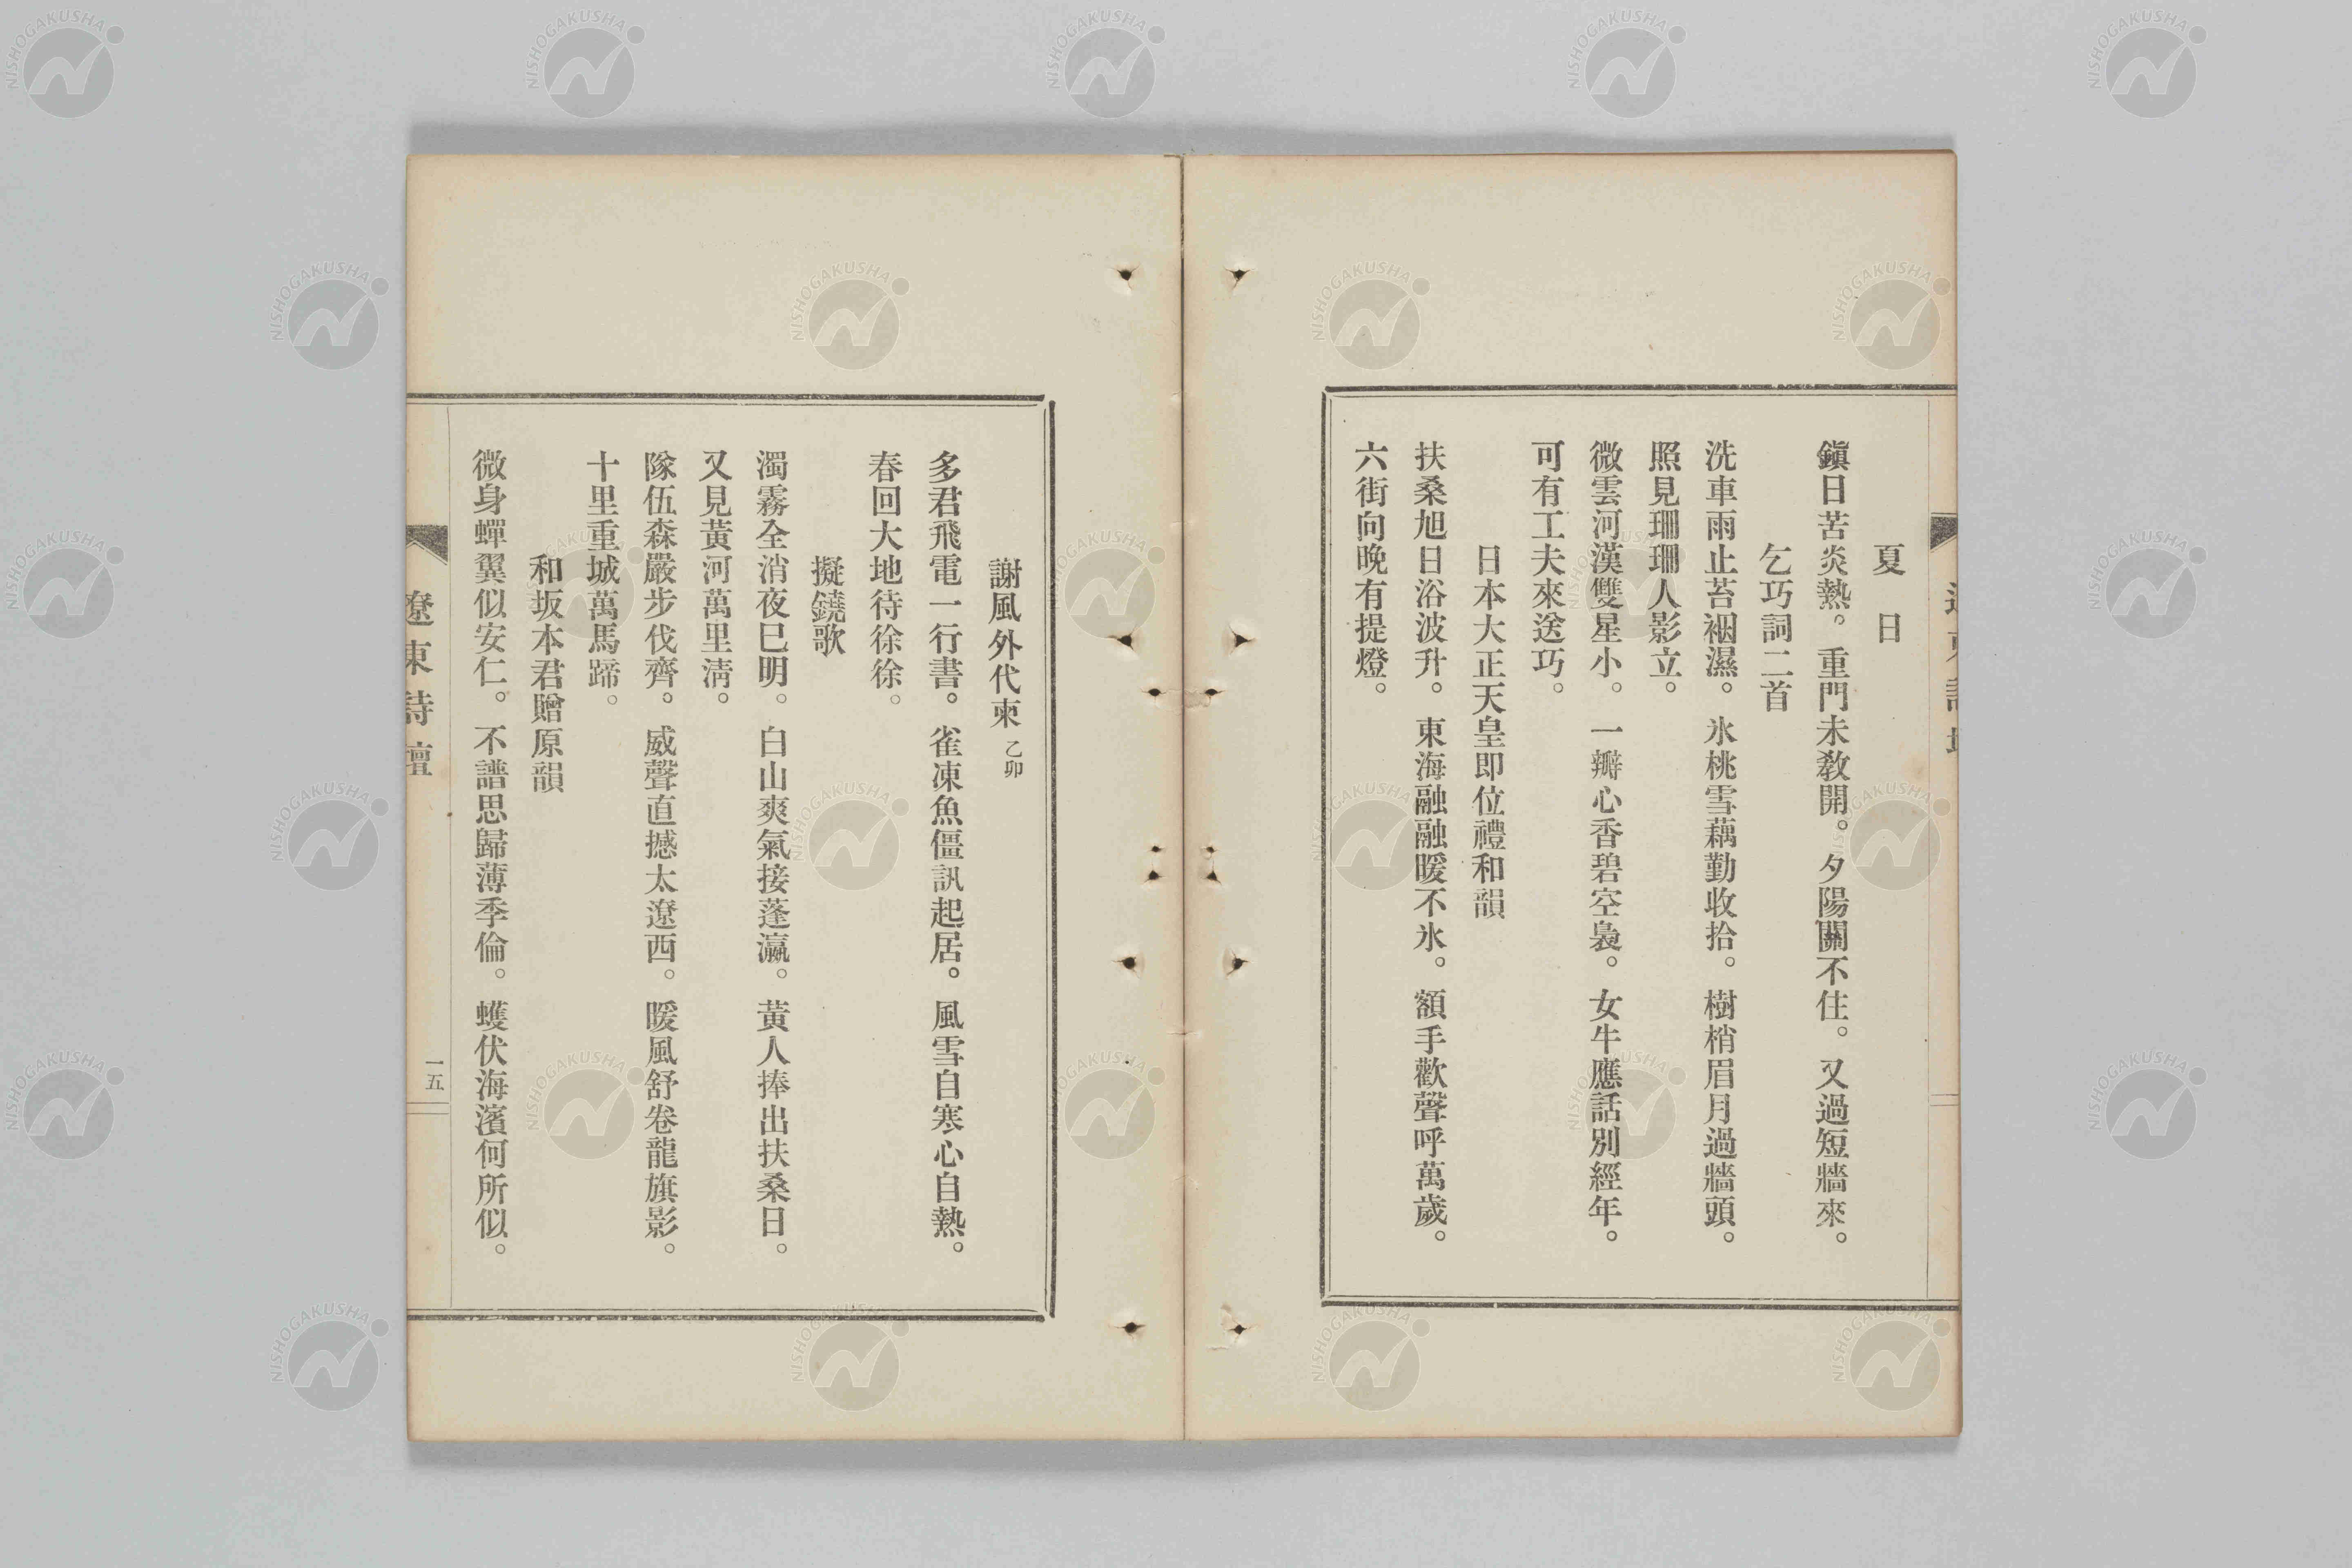 夏　日
鎭日苦炎熱。重門未敎開。夕陽關不住。又過短牆來。
乞巧詞二首
洗車雨止苔裀濕。氷桃雪藕勤收拾。樹梢眉月過牆頭。
照見珊珊人影立。
微雲河漢雙星小。一瓣心香碧空裊。女牛應話別經年。
可有工夫來送巧。
日本大正天皇即位禮和韻
扶桑旭日浴波升。東海融融暖不氷。額手歡聲呼萬歲。
六街向晚有提燈。
謝風外代柬 乙卯
多君飛電一行書。雀凍魚僵訊起居。風雪自寒心自熱。
春回大地待徐徐。
擬鐃歌
濁霧全消夜巳明。白山爽氣接蓬瀛。黃人捧出扶桑日。
又見黃河萬里淸。
隊伍森嚴步伐齊。威聲直撼太遼西。暖風舒卷龍旗影。
十里重城萬馬蹄。
和坂本君贈原韻
微身蟬翼似安仁。不譜思歸薄季倫。蠖伏海濱何所似。
遼東詩壇
一五
NISHOGAKUSHA